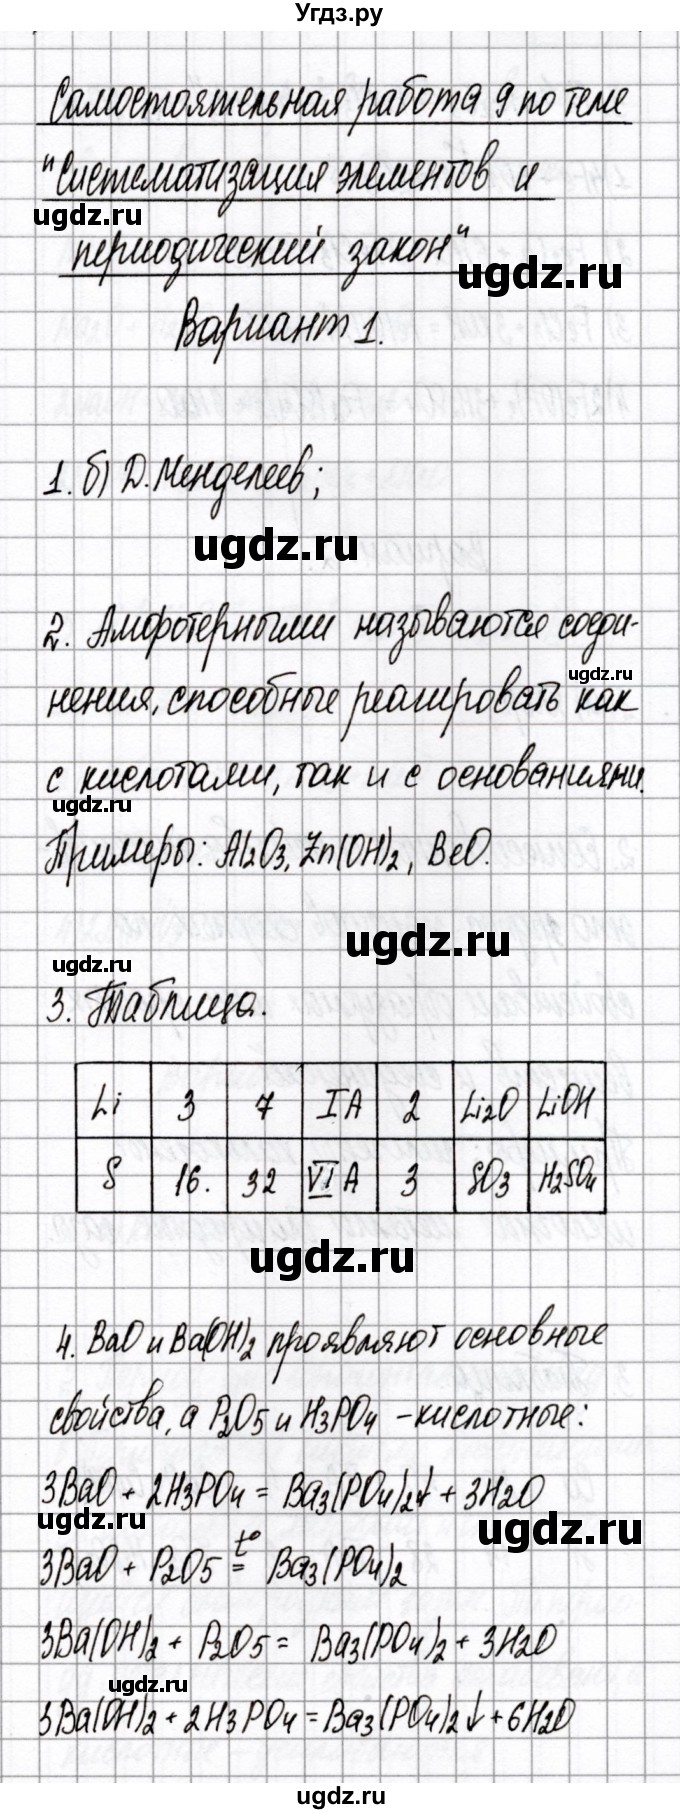 Угдз.ру
Самостоятельная работа 9 по теме
"Систематизация элементов и
ugdz.ru
периодический закон"
ugdz.ru
Вариант 1.
1. б) Д. Менделеев;
ugdz.ru
2. Амфотерными называются соеди-
ugdz.ru
нения, способные реагировать как
с кислотами, так и с основаниями.
ugdz.ru
Примеры: Al2O3, Zn(OH)2, BeO.
ugdz.ru
ugdz.ru
3. Таблица.
Li 3 7 IA 2 Li2O LiOH
S 16. 32 VIA 3 SO3 H2SO4
ugdz.ru
4. BaO и Ba(OH)2 проявляют основные
свойства, а P2O5 и H3PO4 - кислотные:
3BaO + 2H3PO4 = Ba3(PO4)2↓ + 3H2O
ugdz.ru
ugdz.ru
3BaO + P2O5 =t° Ba3(PO4)2
3Ba(OH)2 + P2O5 = Ba3(PO4)2 + 3H2O
ugdz.ru
3Ba(OH)2 + 2H3PO4 = Ba3(PO4)2↓ + 6H2O
ugdz.ru
ugdz.ru